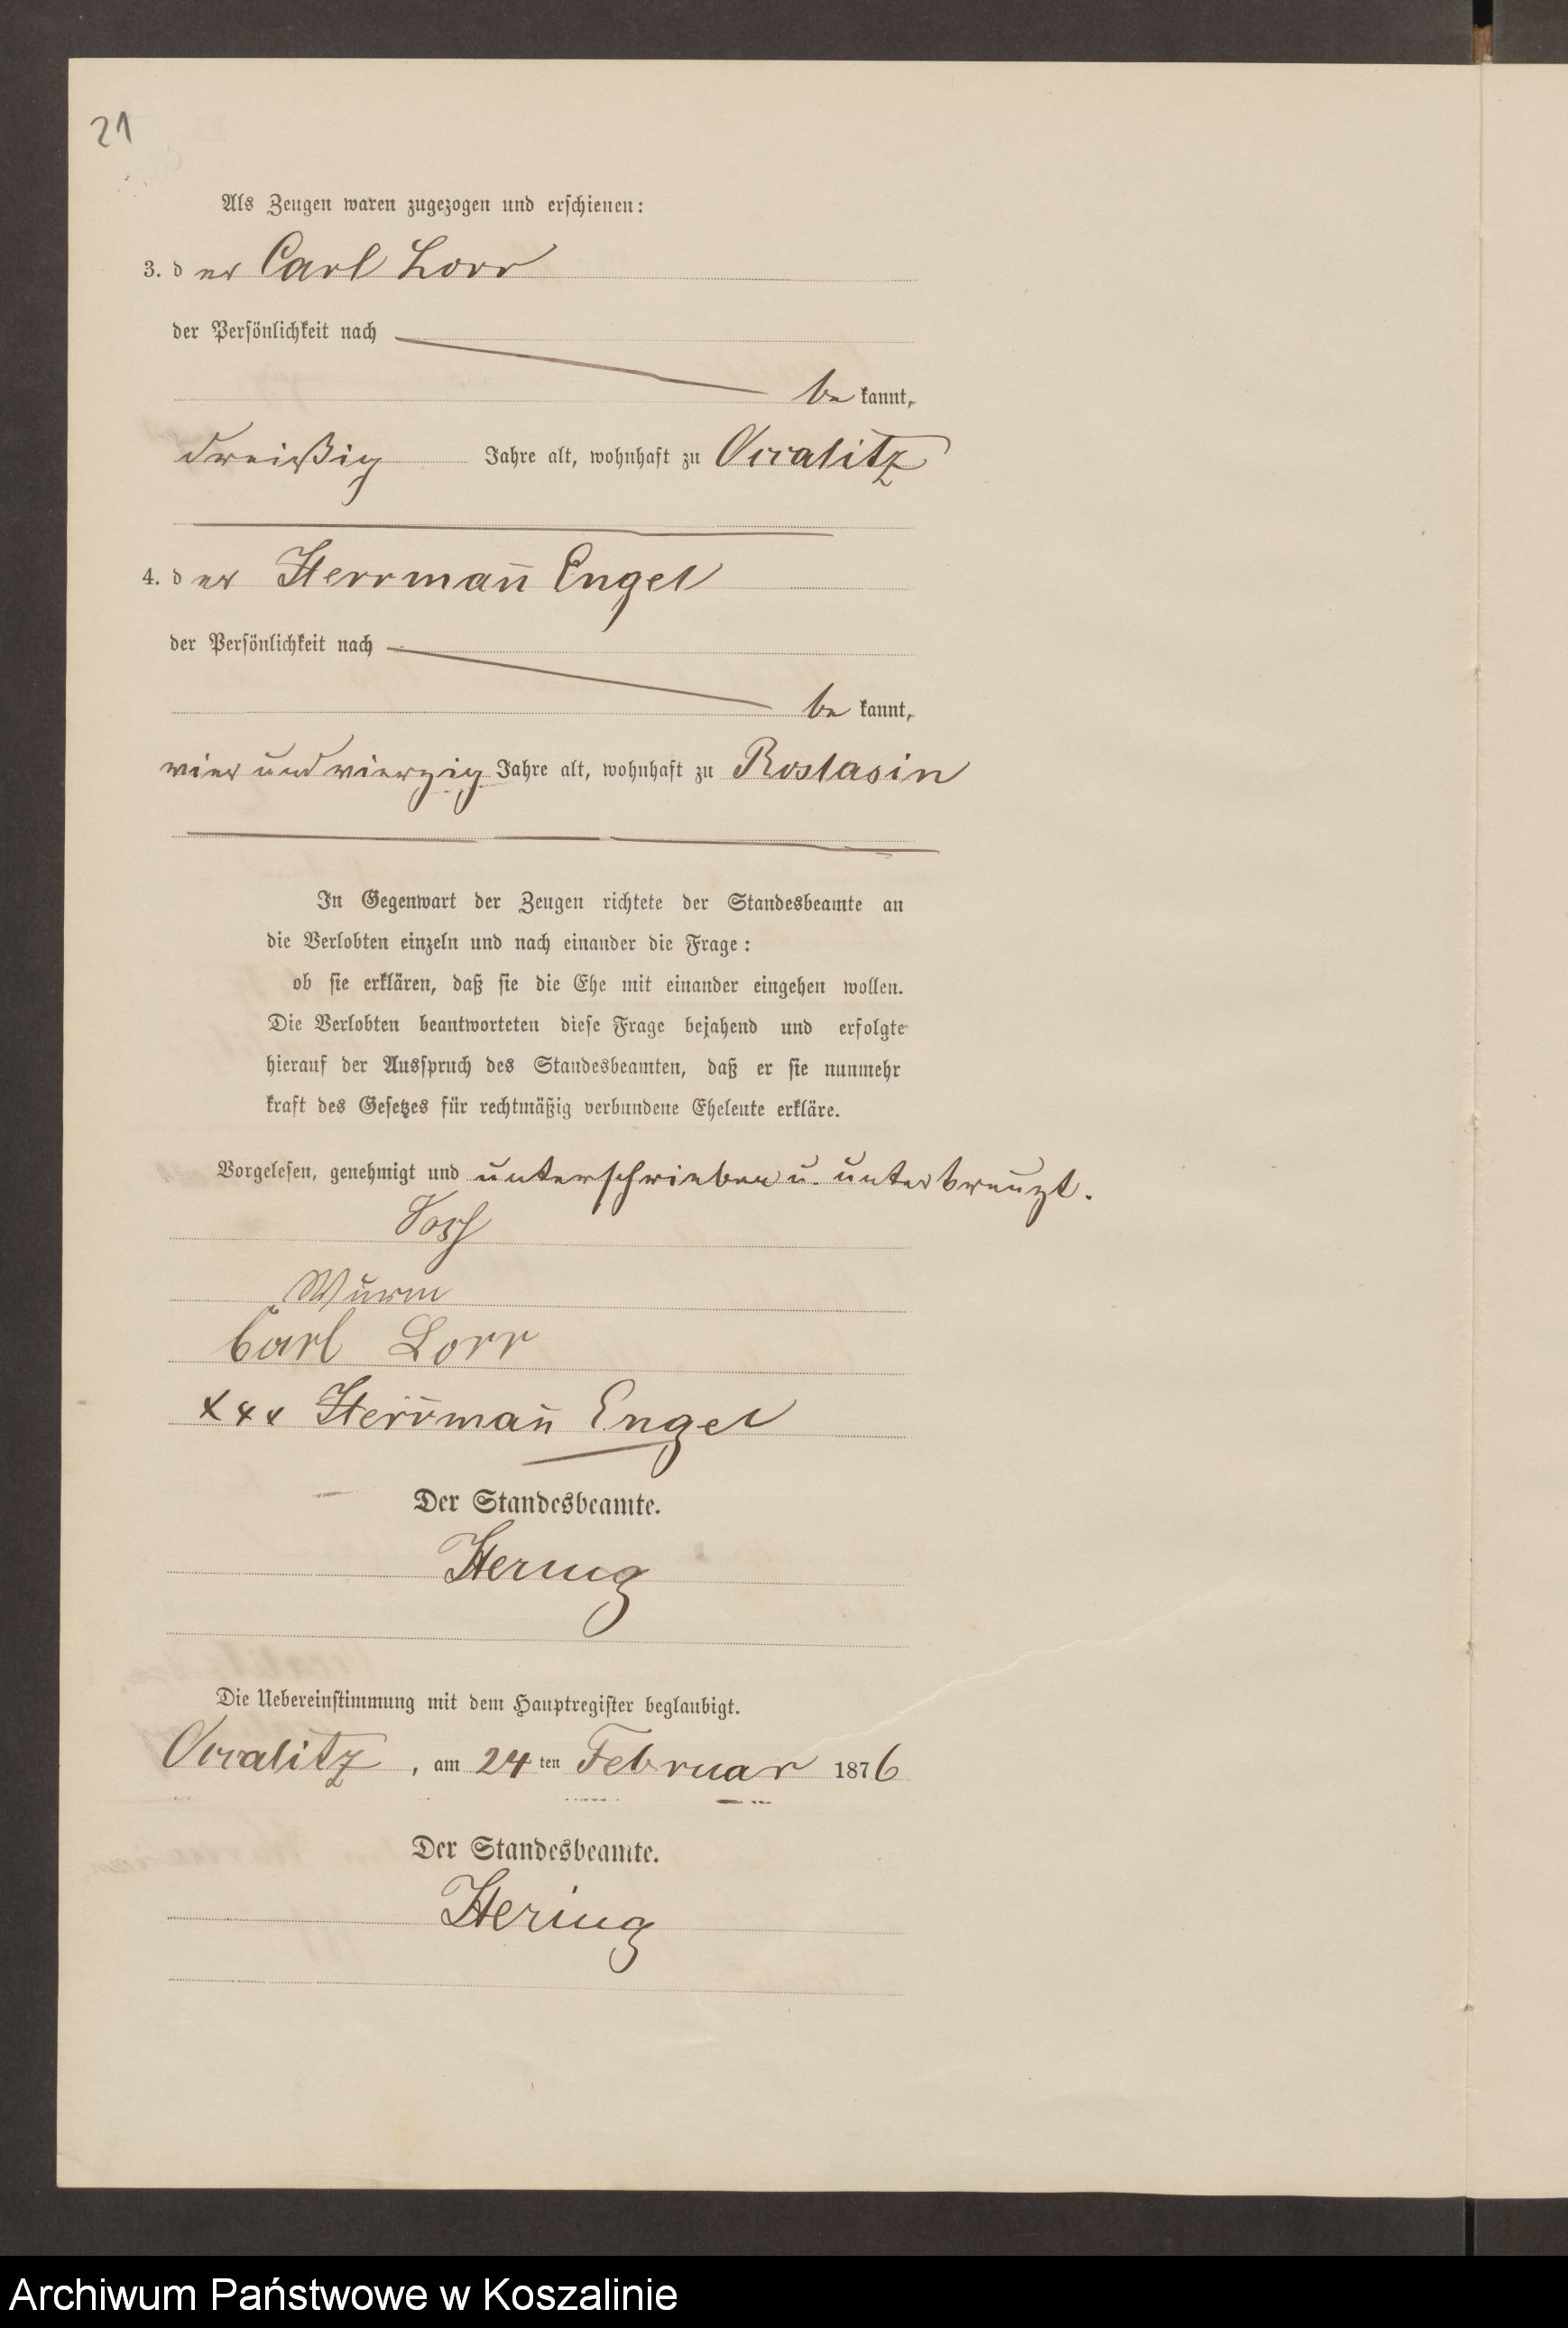 21
Als Zeugen waren zugezogen und erschienen:
3. der Carl Lorr
der Persönlichkeit nach
be kannt,
dreißig Jahre alt, wohnhaft zu Occalitz
4. der Herrmañ Engel
der Persönlichkeit nach
be kannt,
vier und vierzig Jahre alt, wohnhaft zu Roslasin
In Gegenwart der Zeugen richtete der Standesbeamte an
die Verlobten einzeln und nach einander die Frage:
ob sie erklären, daß sie die Ehe mit einander eingehen wollen.
Die Verlobten beantworteten diese Frage bejahend und erfolgte
hierauf der Ausspruch des Standesbeamten, daß er sie nunmehr
kraft des Gesetzes für rechtmäßig verbundene Eheleute erkläre.
Vorgelesen, genehmigt und unterschrieben u. unterkreuzt.
Wurm
Carl Lorr
xxx Herrmañ Engel
Der Standesbeamte.
Hering
Die Uebereinstimmung mit dem Hauptregister beglaubigt.
Occalitz, am 24 ten Februar 1876
Der Standesbeamte.
Hering
Archiwum Państwowe w Koszalinie